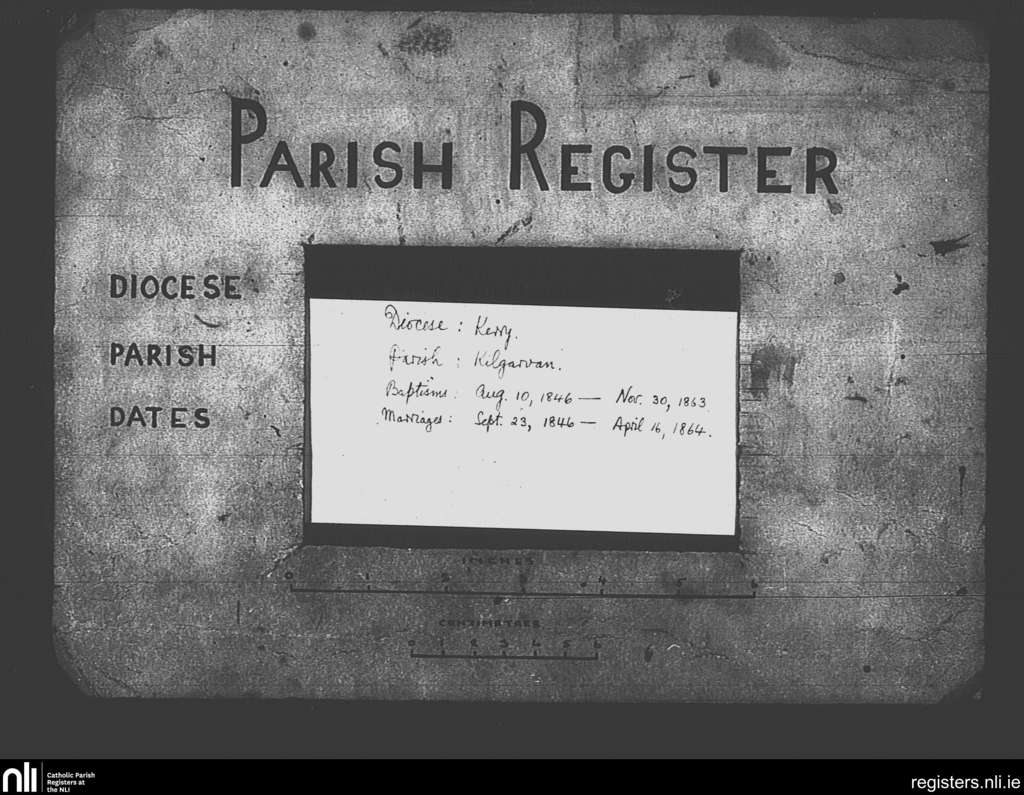 PARISH REGISTER
DIOCESE
PARISH
DATES
Diocese : Kerry.
Parish : Kilgarvan.
Baptisms: Aug. 10, 1846 — Nov. 30, 1863.
Marriages: Sept. 23, 1846 — April 16, 1864.
INCHES
0 1 2 3 4 5 6
CENTIMETRES
0 1 2 3 4 5 6
nli
Catholic Parish
Registers at
the NLI
registers.nli.ie